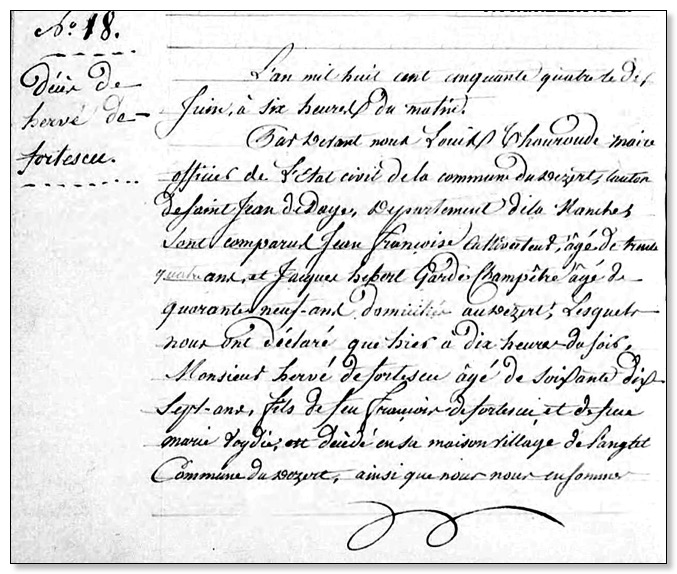 N.º 18.
Décès de
hervé de-
fortescu.
L'an mil huit cent cinquante quatre le dix
Juin, à six heures du matin.
Par devant nous Louis Chauroude maire
officier de l'Etat civil de la commune du dézert, canton
de Saint Jean de Daye, département de la Manche,
sont comparus Jean Françoise Cultivateur, âgé de trente
quatre ans, et Jacques hebert Garde Champêtre âgé de
quarante neuf-ans domiciliés au dézert, Lesquels
nous ont déclaré que hier à dix heures du soir,
Monsieur hervé de fortescu âgé de soixante dix
Sept-ans, fils de feu François de fortescu et de feue
marie, est décédé en sa maison village de
Commune du dezert, ainsi que nous nous en sommes